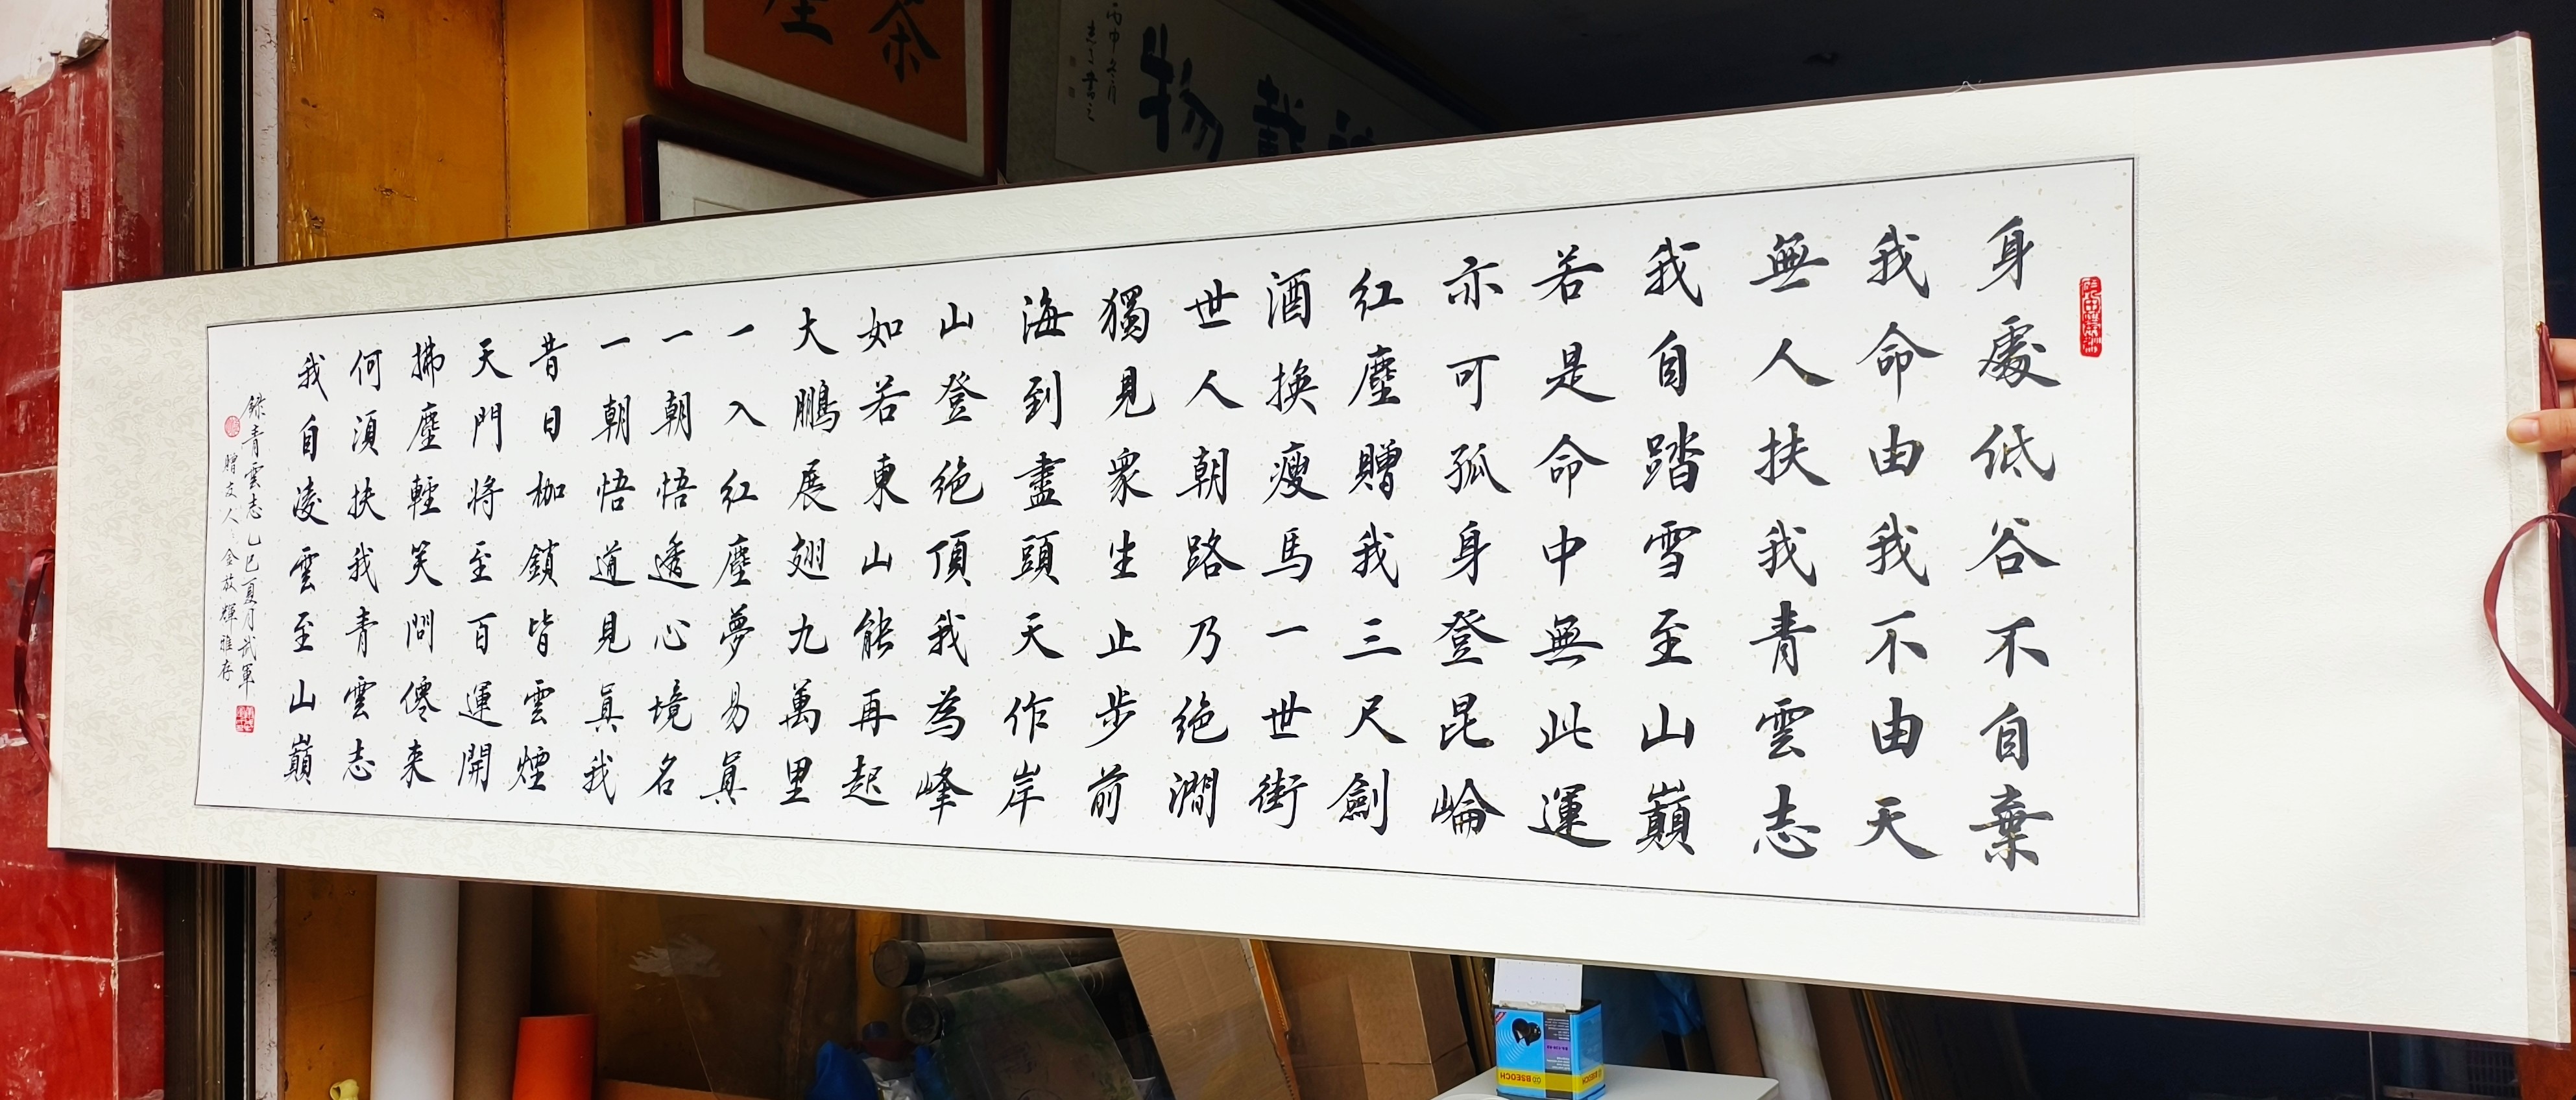 身處低谷不自棄
我命由我不由天
無人扶我青雲志
我自踏雪至山巔
若是命中無此運
亦可孤身登昆崘
紅塵贈我三尺劍
酒換瘦馬一世街
世人朝路乃絕澗
獨見衆生止步前
海到盡頭天作岸
山登绝頂我為峰
如若東山能再起
大鵬展翅九萬里
一入紅塵夢易真
一朝悟透心境名
一朝悟道見真我
昔日枷鎖皆雲煙
天門将至百運開
拂塵輕笑問僊来
何須扶我青雲志
我自淩雲至山巔
錄青雲志乙巳夏月武軍
贈友人:金放輝雅存
茶
載物
丙申冬月
BSEOCH